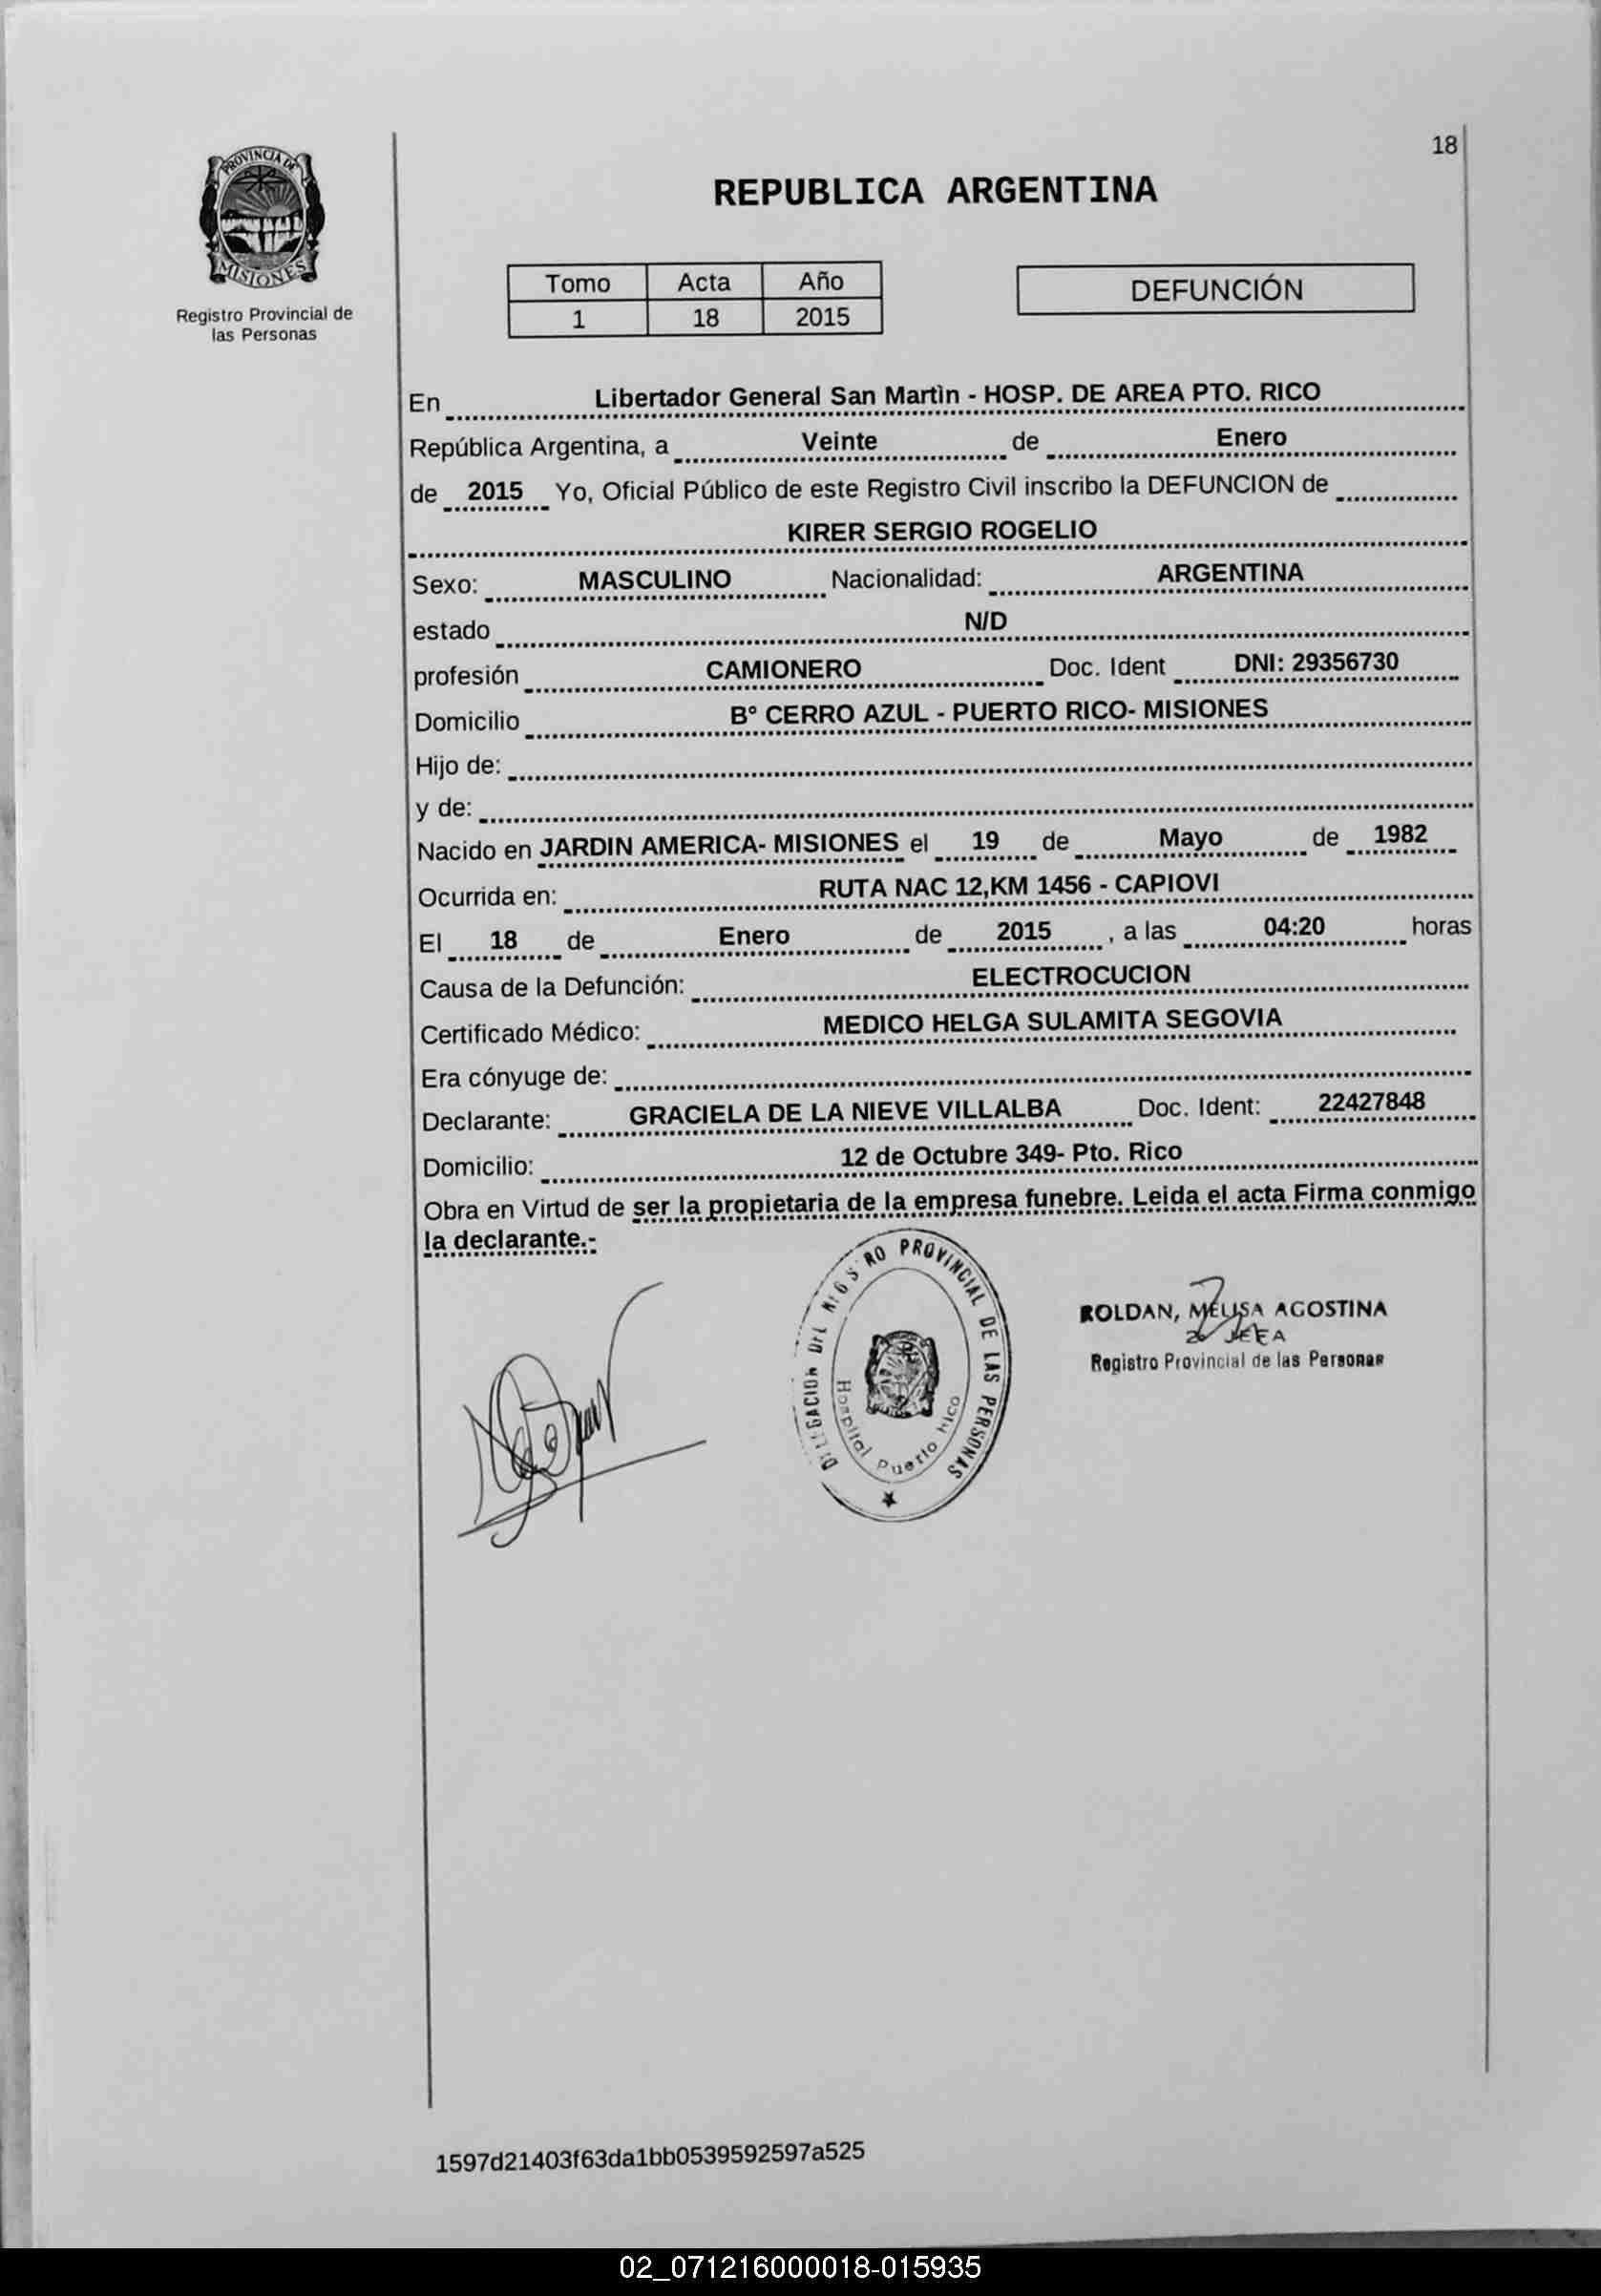 18
PROVINCIA DE
MISIONES
Registro Provincial de
las Personas
REPUBLICA ARGENTINA
Tomo Acta Año
1 18 2015
DEFUNCIÓN
En Libertador General San Martìn - HOSP. DE AREA PTO. RICO
República Argentina, a Veinte de Enero
de 2015 Yo, Oficial Público de este Registro Civil inscribo la DEFUNCION de
KIRER SERGIO ROGELIO
Sexo: MASCULINO Nacionalidad: ARGENTINA
estado N/D
profesión CAMIONERO Doc. Ident DNI: 29356730
Domicilio Bº CERRO AZUL - PUERTO RICO- MISIONES
Hijo de:
y de:
Nacido en JARDIN AMERICA- MISIONES el 19 de Mayo de 1982
Ocurrida en: RUTA NAC 12,KM 1456 - CAPIOVI
El 18 de Enero de 2015 , a las 04:20 horas
Causa de la Defunción: ELECTROCUCION
Certificado Médico: MEDICO HELGA SULAMITA SEGOVIA
Era cónyuge de:
Declarante: GRACIELA DE LA NIEVE VILLALBA Doc. Ident: 22427848
Domicilio: 12 de Octubre 349- Pto. Rico
Obra en Virtud de ser la propietaria de la empresa funebre. Leida el acta Firma conmigo
la declarante.-
PROVINCIAL DE LAS PERSONAS
Hospital Puerto Rico
ROLDAN, MELISA AGOSTINA
Registro Provincial de las Personas
1597d21403f63da1bb0539592597a525
02_071216000018-015935